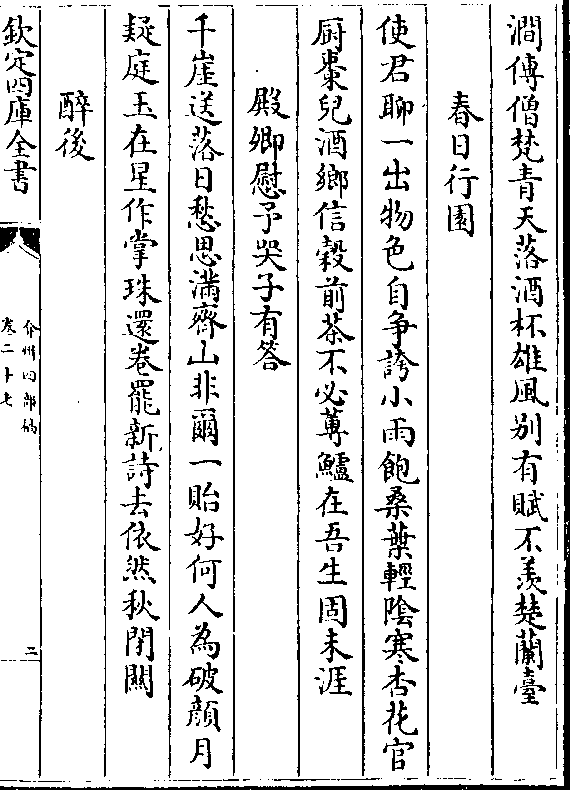 澗傳僧梵青天落酒杯雄風别有賦不羨楚蘭臺
春日行園
使君聊一出物色自争誇小雨飽桑葉輕陰寒杏花官
厨棗兒酒鄉信穀前茶不必蓴鱸在吾生固未涯
殿卿慰予哭子有答
千崖送落日愁思滿齊山非爾一貽好何人為破顔月
疑庭玉在星作掌珠還卷罷新詩去依然秋閉關
醉後
欽定四庫全書
弇州四部稿
卷二十七
三